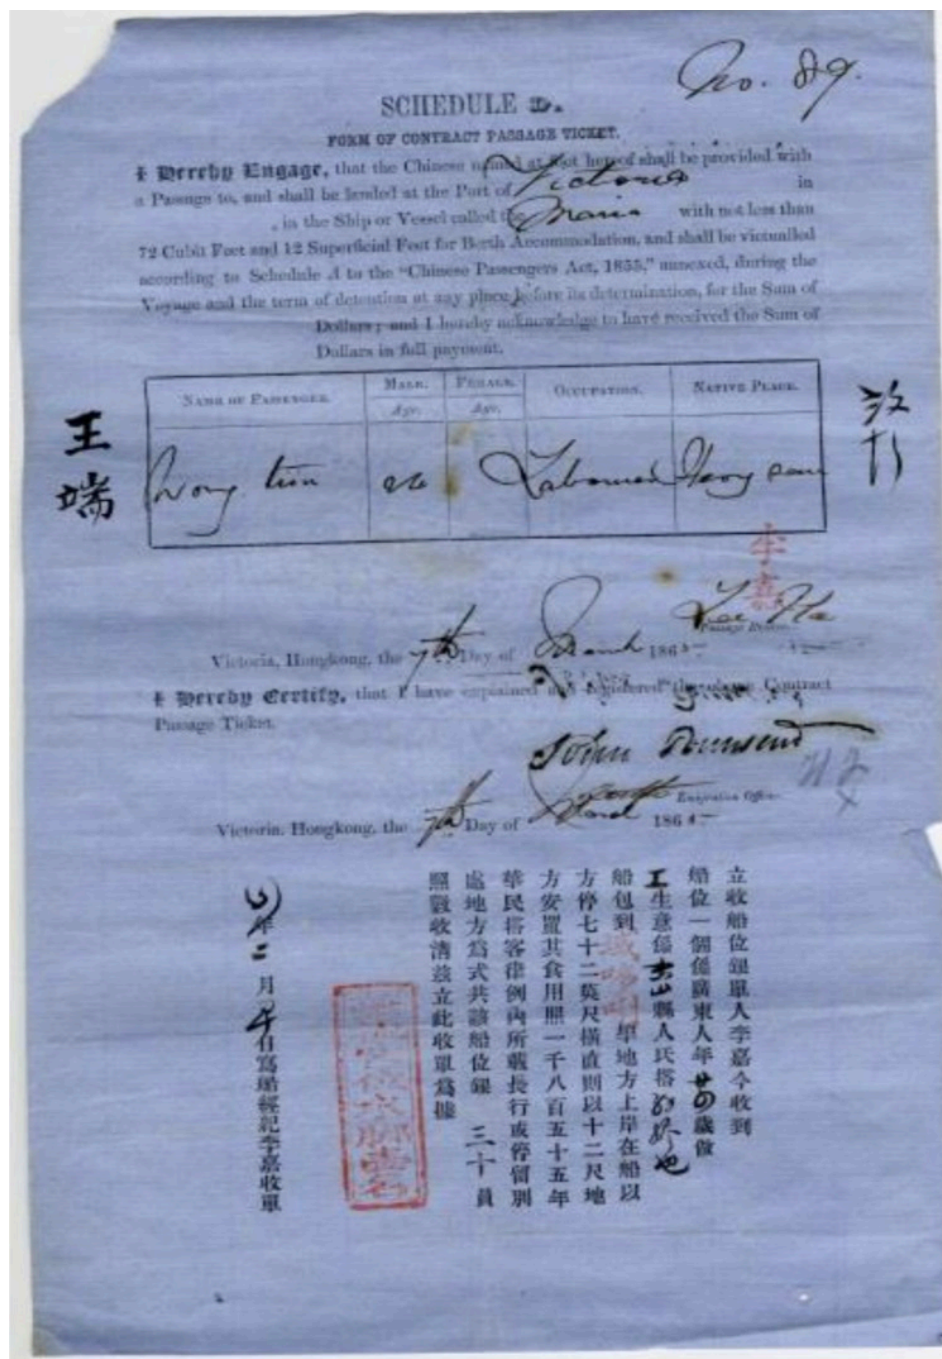 No. 89.
SCHEDULE D.
FORM OF CONTRACT PASSAGE TICKET.
I Hereby Engage, that the Chinese named at foot hereof shall be provided with
a Passage to, and shall be landed at the Port of Victoria in
, in the Ship or Vessel called the Maria with not less than
72 Cubit Feet and 12 Superficial Feet for Berth Accommodation, and shall be victualled
according to Schedule A to the "Chinese Passengers Act, 1855," annexed, during the
Voyage and the term of detention at any place before its determination, for the Sum of
Dollars; and I hereby acknowledge to have received the Sum of
Dollars in full payment.
NAME OF PASSENGER. MALE. FEMALE. OCCUPATION. NATIVE PLACE.
Age. Age.
王端
Wong Labourer
李嘉
Lee Ha
Passage Broker
Victoria, Hongkong, the 7th Day of March 1865
I Hereby Certify, that I have explained and registered the above Contract
Passage Ticket.
John Townsend
Emigration Officer
Victoria, Hongkong, the 7th Day of 1865
立收船位銀單人李嘉今收到
船位一個係廣東人年廿四歲做
工生意係縣人氏搭
船包到域哆唎埠地方上岸在船以
方停七十二英尺橫直則以十二尺地
方安置其食用照一千八百五十五年
華民搭客律例內所載長行或停留別
處地方為式共該船位銀 三十員
照數收清茲立此收單為據
年二月日寫船經紀李嘉收單